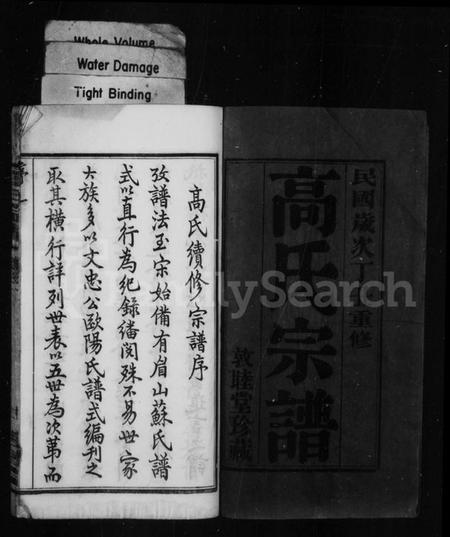 Whole Volume
Water Damage
Tight Binding
民國歲次丁重修
高氏宗譜
敦睦堂珍藏
高氏續修宗譜序
攷譜法至宗始備有眉山蘇氏譜
式以直行為紀錄繙閱殊不易世家
大族多以文忠公歐陽氏譜式編刊之
取其橫行詳列世表以五世為次第而
FamilySearch